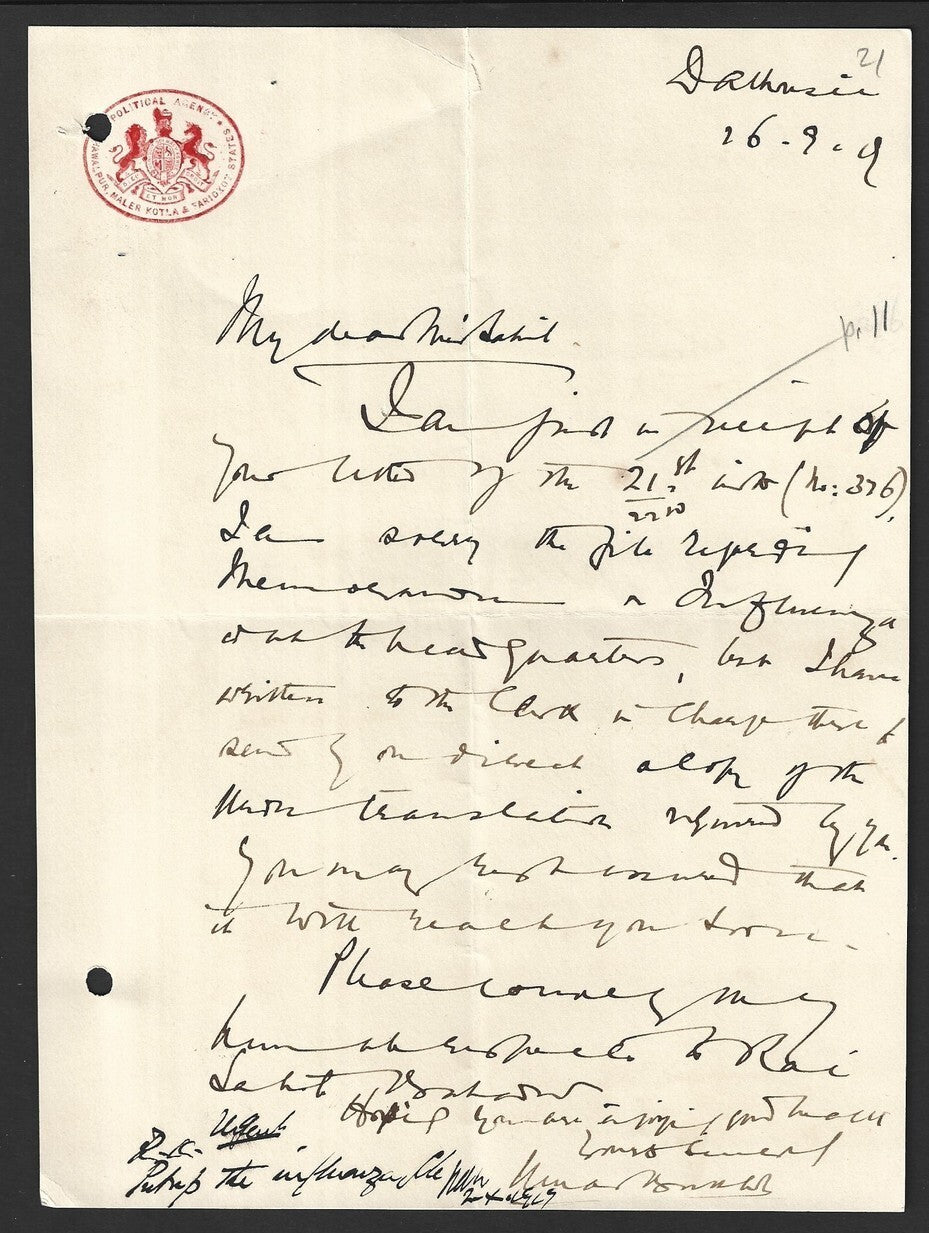 21
Dalhousie
26-9-19
POLITICAL AGENCY
BAHAWALPUR, MALER KOTLA & FARIDKOT STATES
My dear Mir Sahib
p. 116
I am just in receipt of
your letter of the 21st inst (No: 376)
I am sorry the file regarding
Memorandum on Influenza
is at the headquarters, but I have
written to the Clerk in Charge there to
send you direct a copy of the
translation required by you.
You may rest assured that
it will reach you soon.
Please convey my
humble respects to Rai
Sahib Bahadur
Hoping you are enjoying good health
Yours Sincerely
Urgent
Put up the influenza file